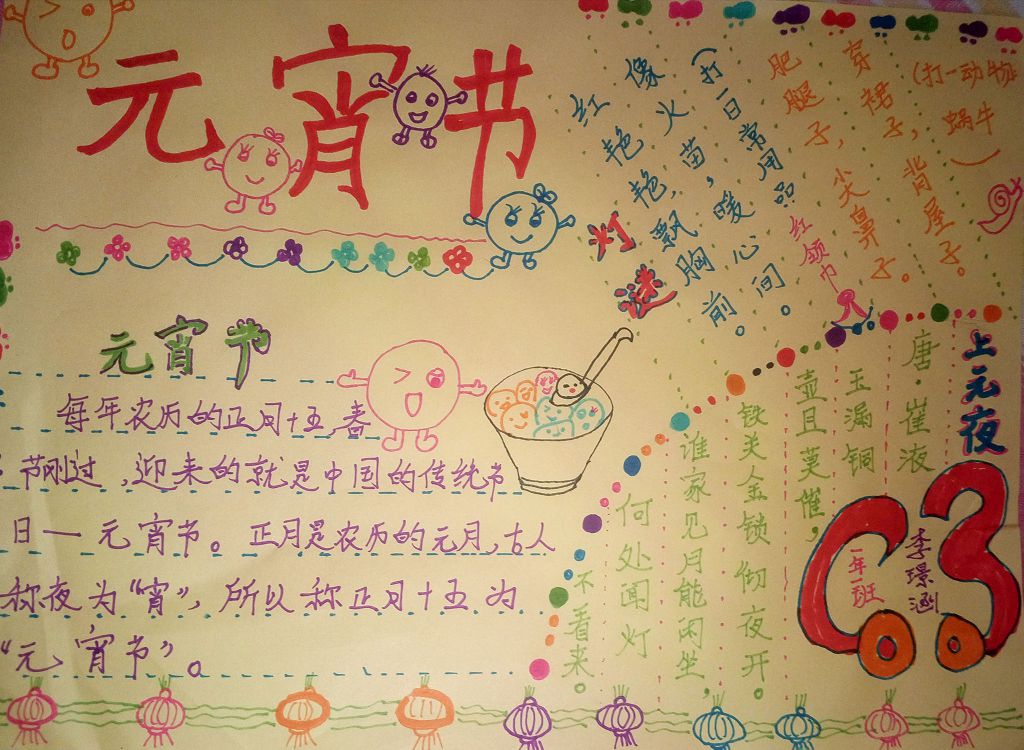 元宵节
元宵节
每年农历的正月十五,春
节刚过,迎来的就是中国的传统节
日—元宵节。正月是农历的元月,古人
称夜为“宵”,所以称正月十五为
“元宵节”。
灯谜
红艳艳,飘胸前。
像火苗,暖心间。
(打一日常用品
红领巾)
肥腿子,尖鼻子。
穿裙子,背屋子。
(打一动物
蜗牛)
上元夜
唐·崔液
玉漏铜
壶且莫催,
铁关金锁彻夜开。
谁家见月能闲坐,
何处闻灯
不看来。
李璟涵
一年一班